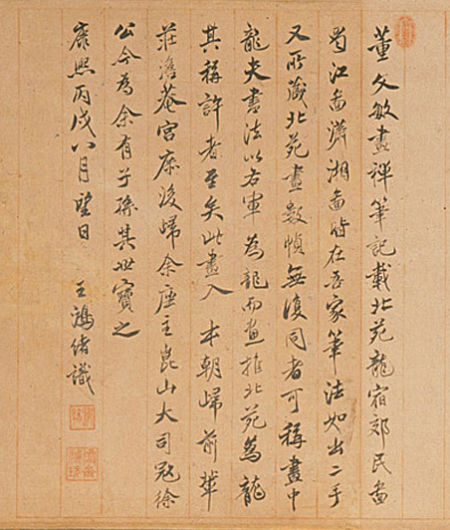 董文敏畫禪筆記載北苑龍宿郊民啚
蜀江啚瀟湘啚皆在吾家筆法如出二手
又所藏北苑畫數幀無復同者可稱畫中
龍夫書法以右軍為龍而畫推北苑為龍
其稱許者至矣此畫入 本朝歸前輩
莊澹菴宮庶後歸余座主崑山大司寇徐
公今為余有子孫其世寶之
康熙丙戌八月望日 王鴻緒識